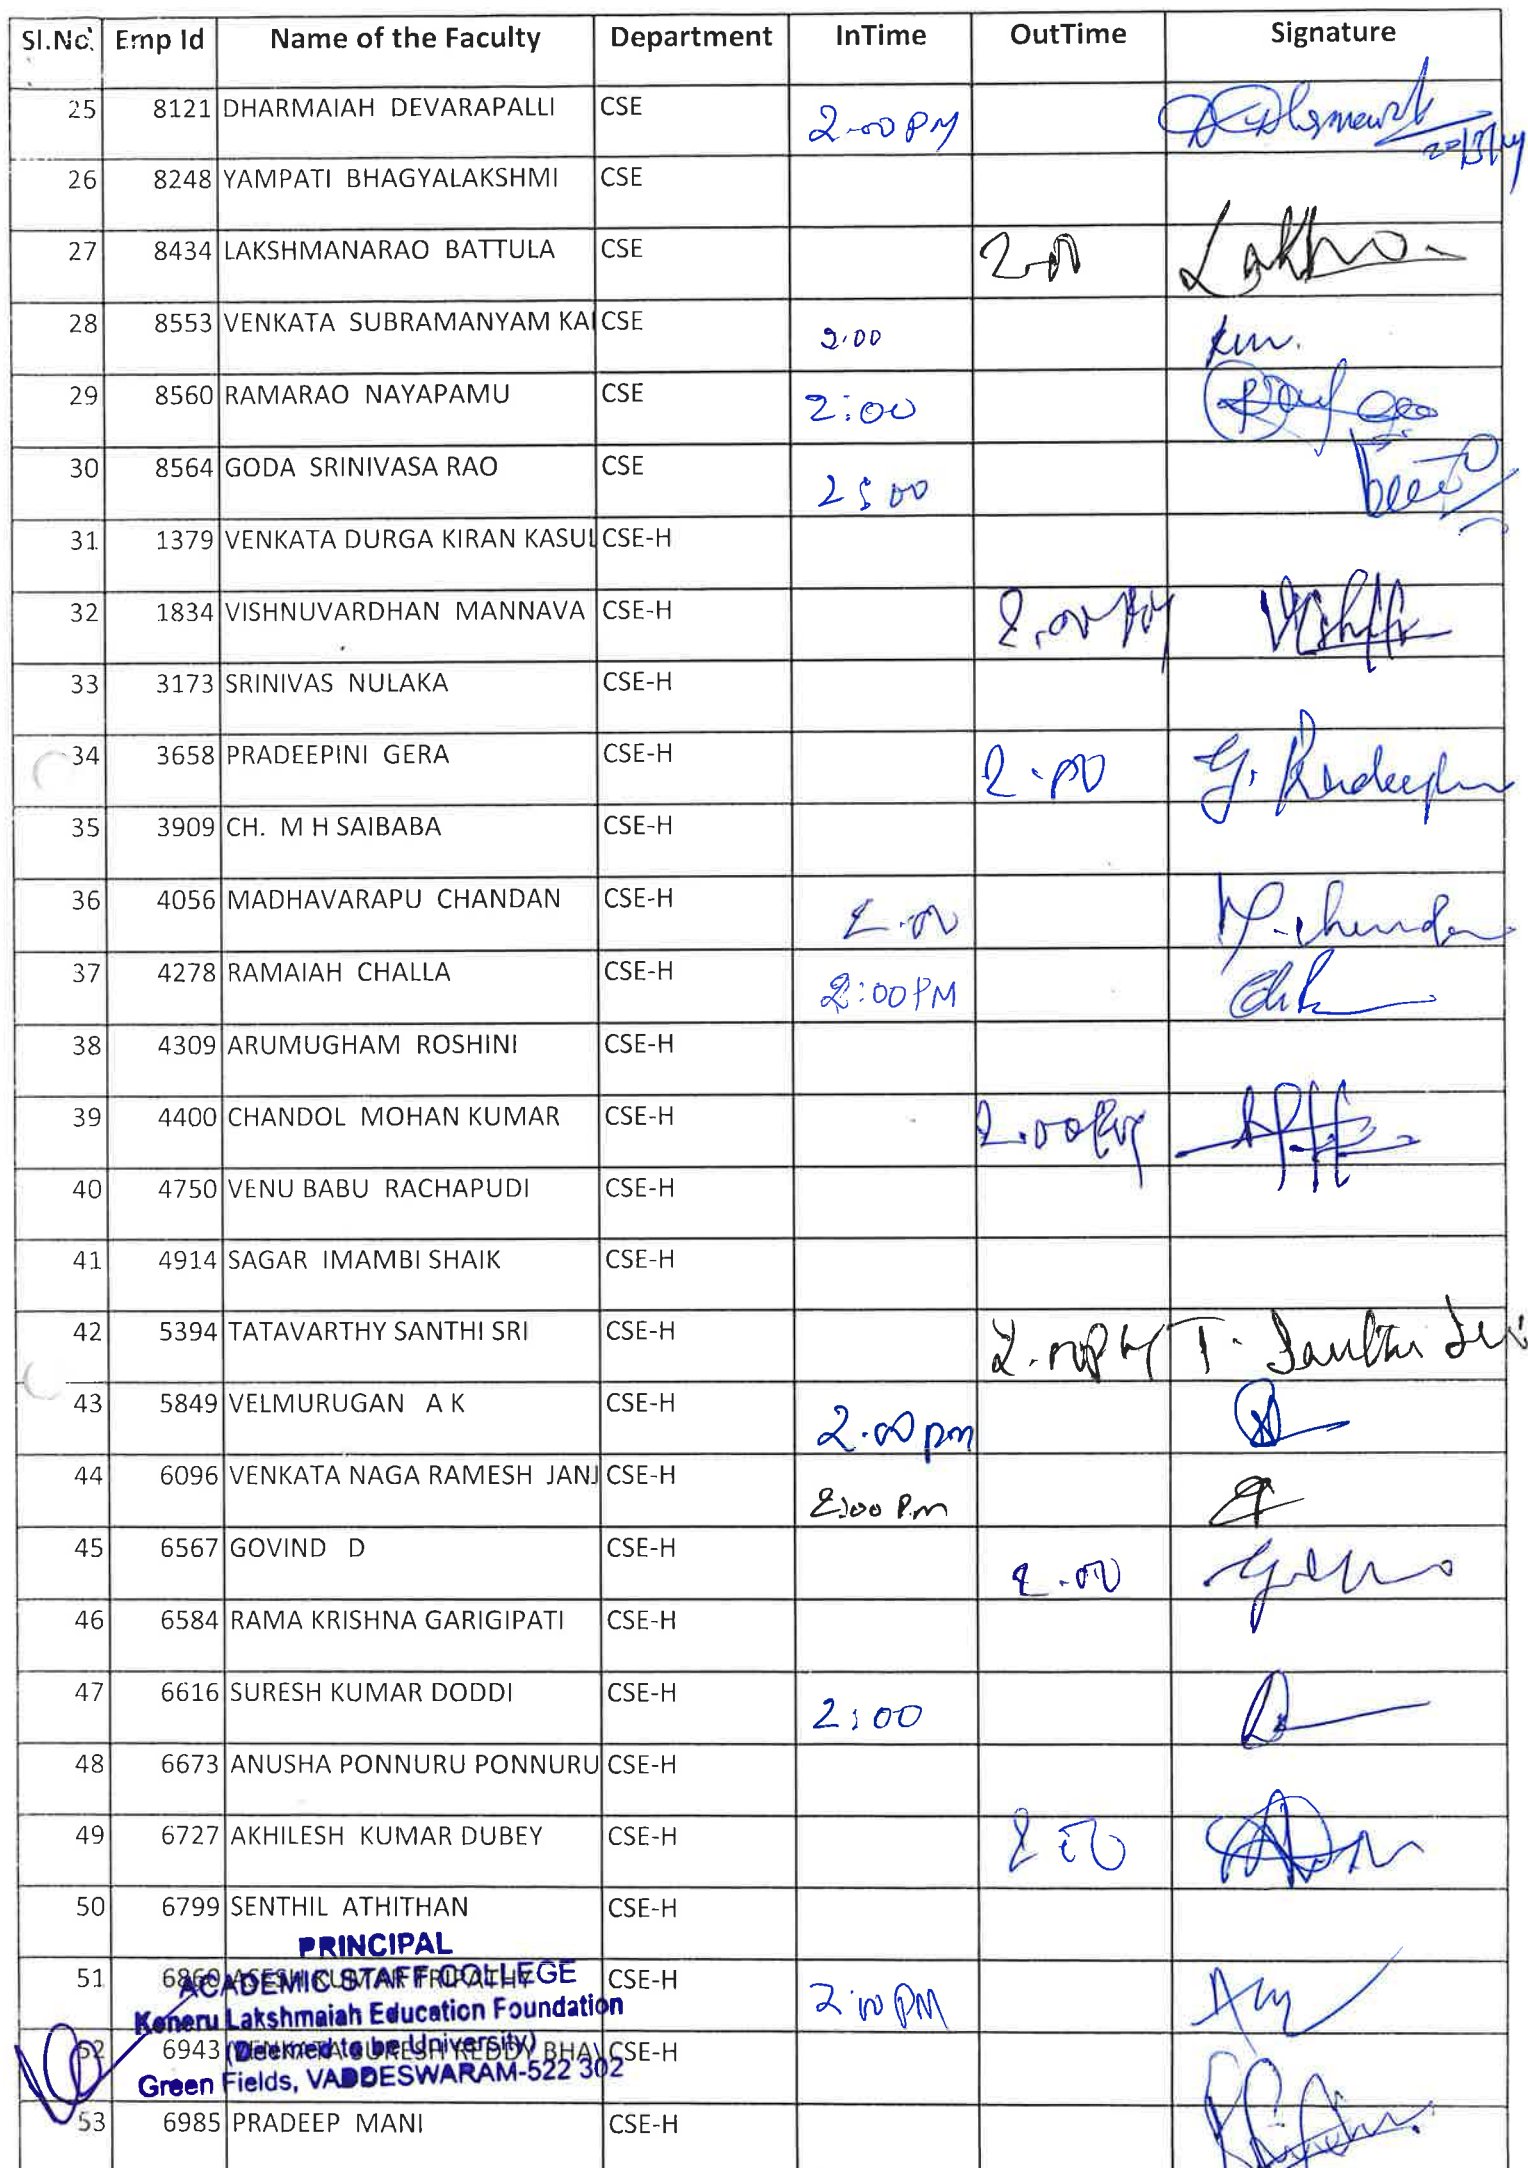 Sl.No. Emp Id Name of the Faculty Department InTime OutTime Signature
25 8121 DHARMAIAH DEVARAPALLI CSE 2.00 PM
26 8248 YAMPATI BHAGYALAKSHMI CSE
27 8434 LAKSHMANARAO BATTULA CSE 2.00
28 8553 VENKATA SUBRAMANYAM KAI CSE 2.00
29 8560 RAMARAO NAYAPAMU CSE 2:00
30 8564 GODA SRINIVASA RAO CSE 2:00
31 1379 VENKATA DURGA KIRAN KASUL CSE-H
32 1834 VISHNUVARDHAN MANNAVA CSE-H 2.00 PM
33 3173 SRINIVAS NULAKA CSE-H
34 3658 PRADEEPINI GERA CSE-H 2.00 G. Pradeepini
35 3909 CH. M H SAIBABA CSE-H
36 4056 MADHAVARAPU CHANDAN CSE-H 2.00 M. Chandan
37 4278 RAMAIAH CHALLA CSE-H 2:00 PM
38 4309 ARUMUGHAM ROSHINI CSE-H
39 4400 CHANDOL MOHAN KUMAR CSE-H 2.00 PM
40 4750 VENU BABU RACHAPUDI CSE-H
41 4914 SAGAR IMAMBI SHAIK CSE-H
42 5394 TATAVARTHY SANTHI SRI CSE-H 2.00 PM T. Santhi Sri
43 5849 VELMURUGAN A K CSE-H 2.00 pm
44 6096 VENKATA NAGA RAMESH JANJ CSE-H 2:00 P.m
45 6567 GOVIND D CSE-H 2.00
46 6584 RAMA KRISHNA GARIGIPATI CSE-H
47 6616 SURESH KUMAR DODDI CSE-H 2:00
48 6673 ANUSHA PONNURU PONNURU CSE-H
49 6727 AKHILESH KUMAR DUBEY CSE-H 2 00
50 6799 SENTHIL ATHITHAN CSE-H
PRINCIPAL
51 6860 KUMAR TRIPATHY CSE-H 2.00 PM
ACADEMIC STAFF COLLEGE
Koneru Lakshmaiah Education Foundation
52 6943 SURESH REDDY BHAV CSE-H
(Deemed to be University)
Green Fields, VADDESWARAM-522 302
53 6985 PRADEEP MANI CSE-H